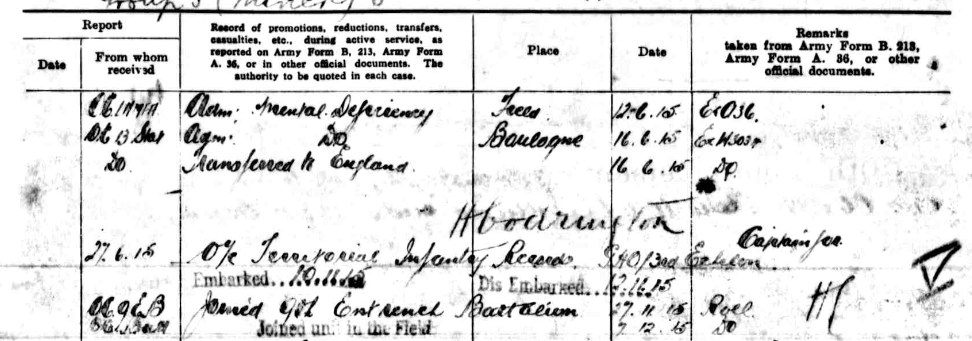 Group 3
Report
Date
From whom received
Record of promotions, reductions, transfers, casualties, etc., during active service, as reported on Army Form B, 213, Army Form A. 36, or in other official documents. The authority to be quoted in each case.
Place
Date
Remarks taken from Army Form B. 213, Army Form A. 36, or other official documents.
Adm. Mental Deficiency 12.6.15
13 Stat Adm. Do Boulogne 16.6.15
Do Transferred to England. 16.6.15 Do
HCodrington
Captain for
27.6.15 O/c Territorial Infantry Records GHQ 3rd Echelon.
Embarked...10.11.15 Dis Embarked...12.11.15
Joined Entrench Battalion 27.11.15 Roll
Joined unit in the Field 7.12.15 Do